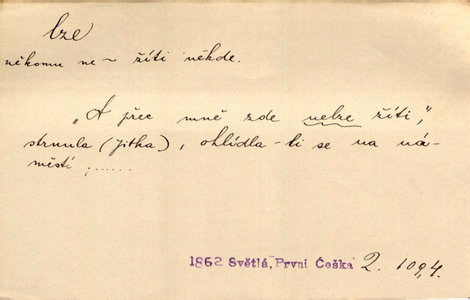 lze
někomu ne ~ žíti někde.
„A přec mně zde nelze žíti",
strnula (Jitka), ohlídla-li se na ná-
městí ;......
1862 Světlá, První Češka 2. 109,4.